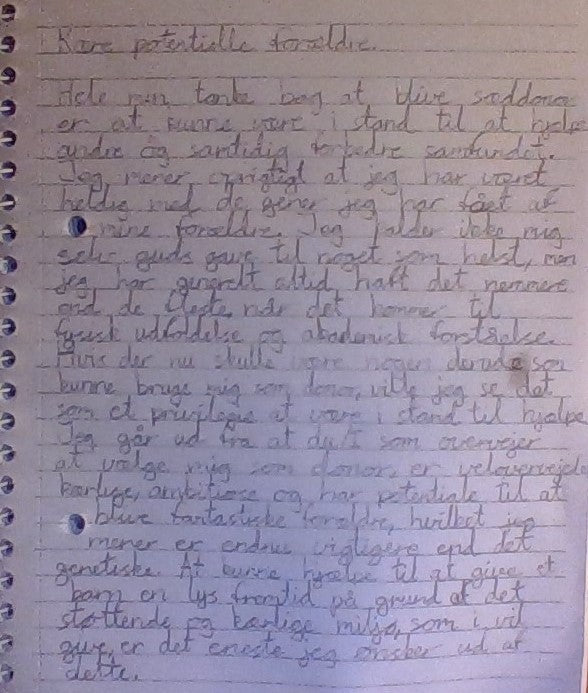 Kære potentielle forældre.
Hele min tanke bag at blive sæddonor
er at kunne være i stand til at hjælpe
andre og samtidig forbedre samfundet.
Jeg mener oprigtigt at jeg har været
heldig med de gener jeg har fået af
mine forældre. Jeg kalder ikke mig
selv guds gave til noget som helst, men
jeg har generelt altid haft det nemmere
end de fleste når det kommer til
fysisk udfoldelse og akademisk forståelse.
Hvis der nu skulle være nogen derude som
kunne bruge mig som donor, ville jeg se det
som et privilegie at være i stand til hjælpe
Jeg går ud fra at du/I som overvejer
at vælge mig som donor, er velovervejet
kærlige, ambitiøse og har potentiale til at
blive fantastiske forældre, hvilket jeg
mener er endnu vigtigere end det
genetiske. At kunne hjælpe til at give et
barn en lys fremtid på grund af det
støttende og kærlige miljø, som i vil
give, er det eneste jeg ønsker ud af
dette.